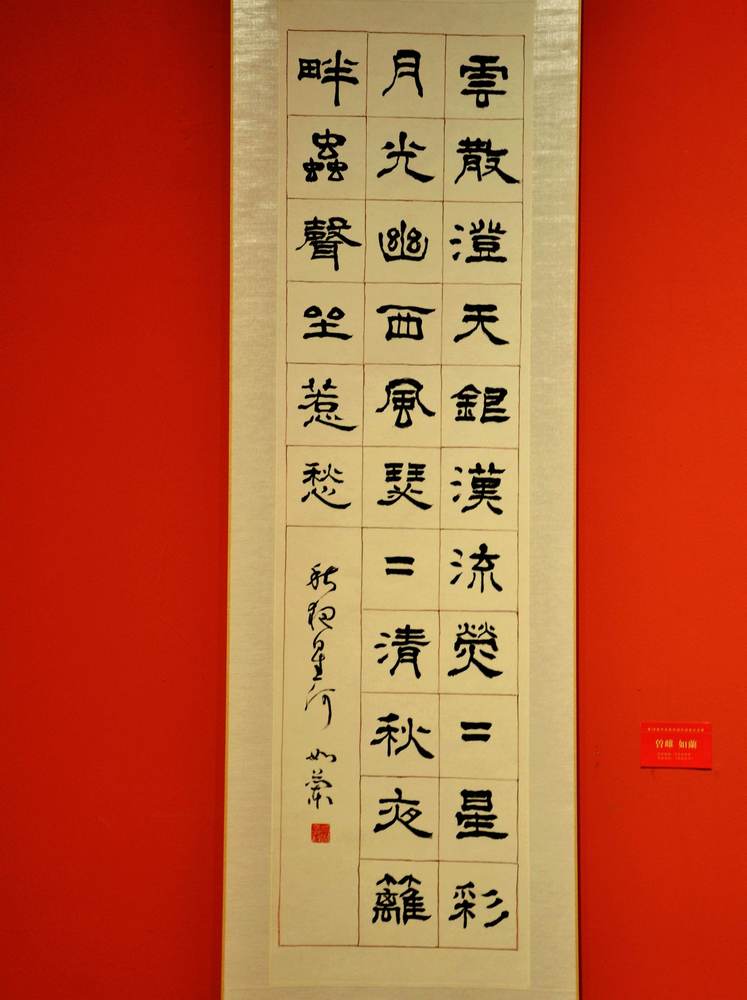 雲散澄天銀漢流熒〓星彩
月光幽西風瑟〓清秋夜籬
畔蟲聲坐惹愁
秋夜星河 如蘭
曾峰 如蘭